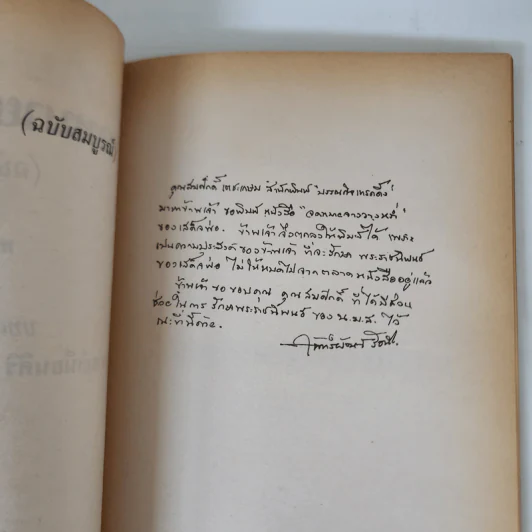 (ฉบับสมบูรณ์)
คุณสมศักดิ์ เตชะเกษม สำนักพิมพ์ "บรรณกิจเทรดดิ้ง"
มาหาข้าพเจ้า ขอพิมพ์ หนังสือ "จดหมายจางวางหร่ำ"
ของเสด็จพ่อ. ข้าพเจ้า จึงตกลงให้พิมพ์ได้ เพราะ
เป็นความประสงค์ ของข้าพเจ้า ที่จะรักษา พระราชนิพนธ์
ของเสด็จพ่อ ไม่ให้หมดไปจากตลาด หนังสืออยู่แล้ว
ข้าพเจ้า ขอขอบคุณ คุณสมศักดิ์ ที่ได้มีส่วน
ช่วยในการ รักษาพระราชนิพนธ์ ของ น.ม.ส. ไว้
ณ ที่นี้ด้วย.